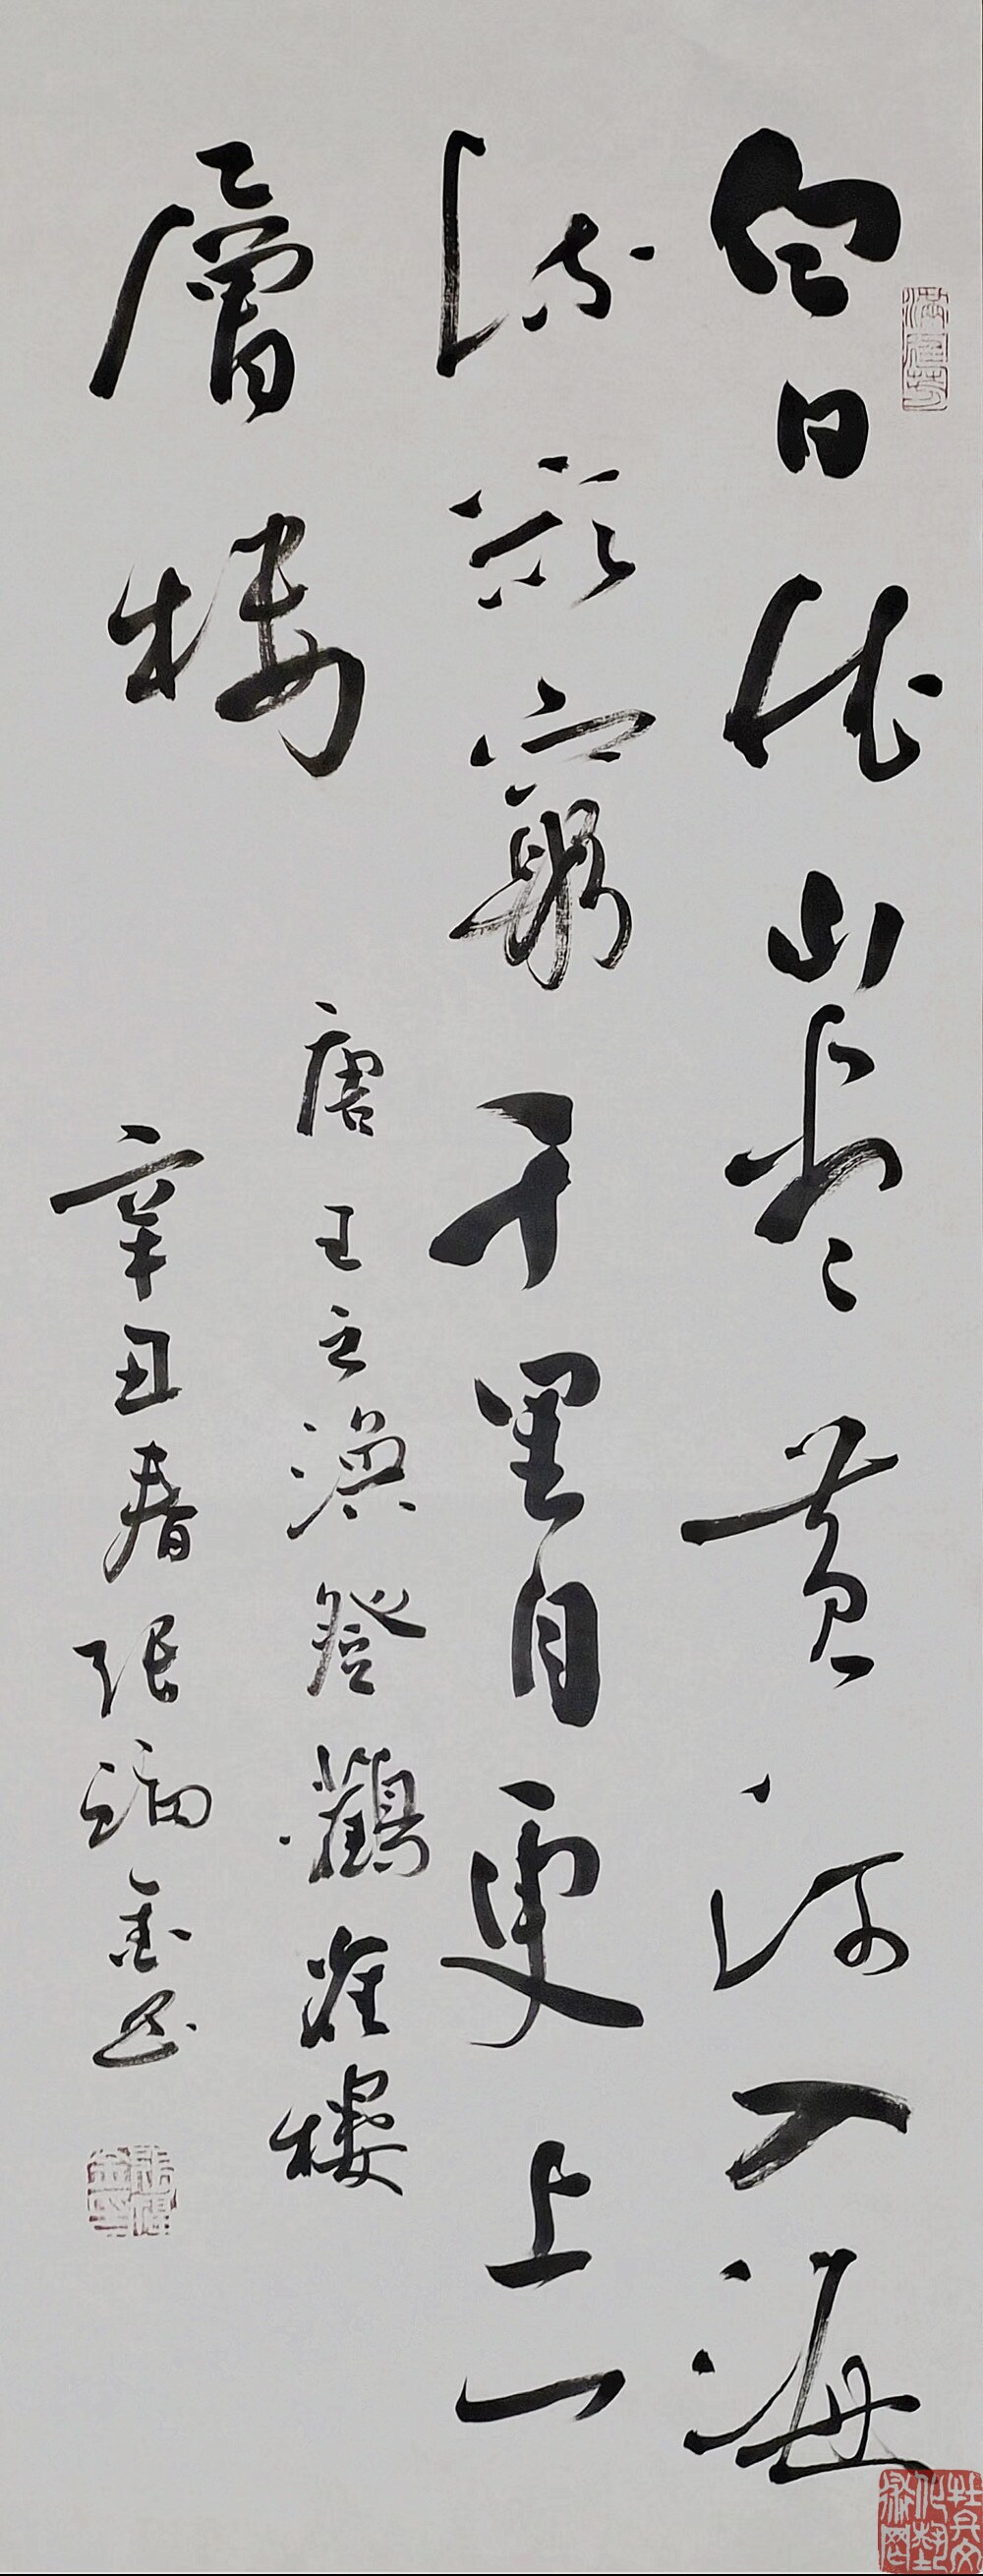 白日依山尽黄河入海
流欲穷千里目更上一
层楼
唐王之涣登鹳雀楼
辛丑春张瑞金书